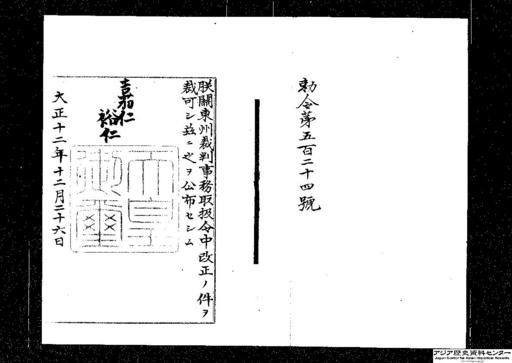 勅令第五百二十四號
朕關東州裁判事務取扱令中改正ノ件ヲ
裁可シ茲ニ之ヲ公布セシム
嘉仁
裕仁
天皇御璽
大正十二年十二月二十六日
アジア歴史資料センター
Japan Center for Asian Historical Records